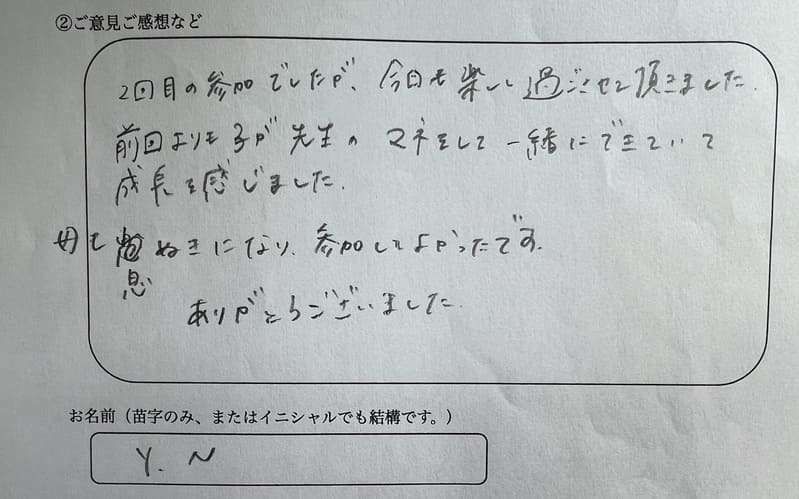 ②ご意見ご感想など
2回目の参加でしたが、今日も楽しく過ごさせて頂きました。
前回よりも子が先生のマネをして一緒にできていて
成長を感じました。
母も息ぬきになり、参加してよかったです。
ありがとうございました。
お名前（苗字のみ、またはイニシャルでも結構です。）
Y. N